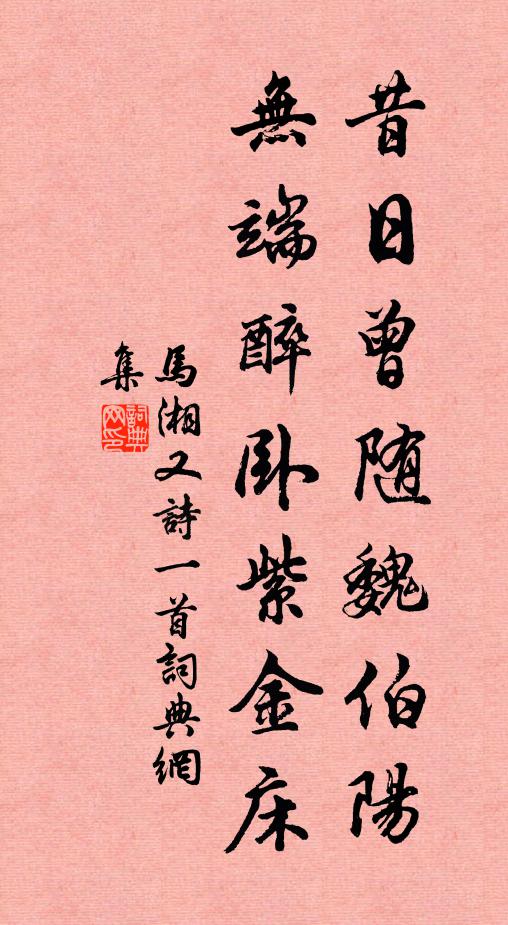 昔日曾随魏伯陽
無端醉卧紫金床
馬湘又詩一首詞典網
集
詞典网印